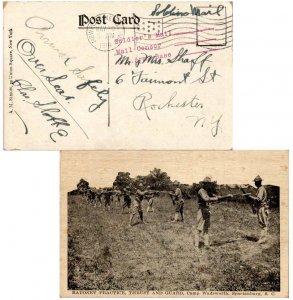 Post Card
Soldiers Mail
Soldier's Mail
Mail Censor
Base
Mr & Mrs Shaff
6 Fairmont St
Rochester
N.Y.
Arrived Safely
Over Seas
Chas
A. M. Simon, Union Square, New York
BAYONET PRACTICE, THRUST AND GUARD, Camp Wadsworth, Spartanburg, S. C.